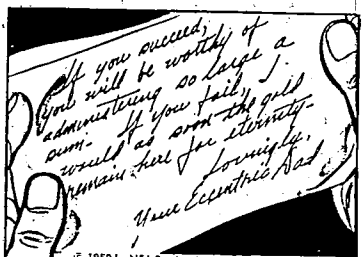 If you succeed,
you will be worthy of
administering so large a
sum. If you fail, I
would as soon the gold
remain here for eternity.
Lovingly,
Your Eccentric Dad